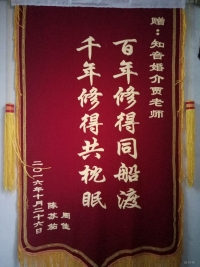 赠：知音婚介贾老师
百年修得同船渡
千年修得共枕眠
周佳
陈苏茹
二〇一六年十月二十六日